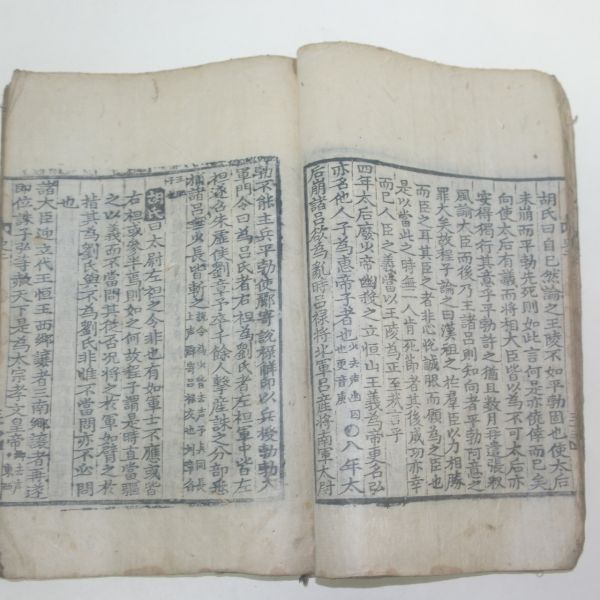 胡氏曰自已然論之王陵不如平勃固也使太后
未崩而平勃先死則如此言何是亦僥倖而已矣
向使太后有議而將相大臣皆以為不可太后亦
安得獨行其意乎平勃許之猶且數月每這張敖
風諭大臣而後乃王諸呂則知向者平勃阿意之
罪大矣故程子論之曰漢祖之於羣臣以力相勝
而臣之耳其臣之者非心悅誠服而願為之臣也
是以當此之時無一人肯死節者其後成功亦幸
而已人臣之義當以王陵為正至哉言乎
四年太后廢少帝幽殺之立恒山王義為帝更名弘
亦名他人子為惠帝子者也 八年太
后崩諸呂欲為亂時呂祿將北軍呂產將南軍太尉
勃不能主兵平勃使酈寄說祿解印以兵授勃勃入
軍門令曰為呂氏者右袒為劉氏者左袒軍中皆左
袒遂 朱虛侯劉章予卒千餘人擊產誅之分部悉
捕諸呂 少長皆斬之
胡氏曰太尉左袒之令非也有如軍士不應或皆
右袒或參半焉則如之何故程子謂是時直當驅
之以義而不當問其從否況將之於軍如臂之於
指其為劉氏與不為劉氏非惟不當問亦不必問
也
諸大臣迎立代王恒王西鄉讓者三南鄉讓者再遂
即位誅子弘等 天下是為太宗孝文皇帝